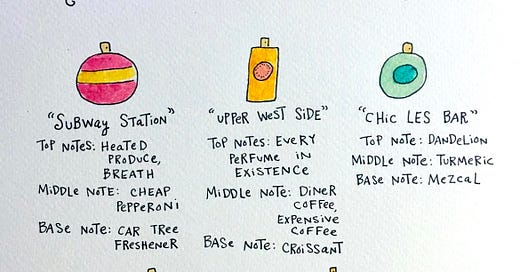 "SUBWAY STATION"
TOP NOTES: HEATED
PRODUCE,
BREATH
MIDDLE NOTE: CHEAP
PEPPERONI
BASE NOTE: CAR TREE
FRESHENER
"UPPER WEST SIDE"
TOP NOTES: EVERY
PERFUME IN
EXISTENCE
MIDDLE NOTE: DINER
COFFEE,
EXPENSIVE
COFFEE
BASE NOTE: CROISSANT
"CHIC LES BAR"
TOP NOTE: DANDELION
MIDDLE NOTE: TURMERIC
BASE NOTE: MEZCAL